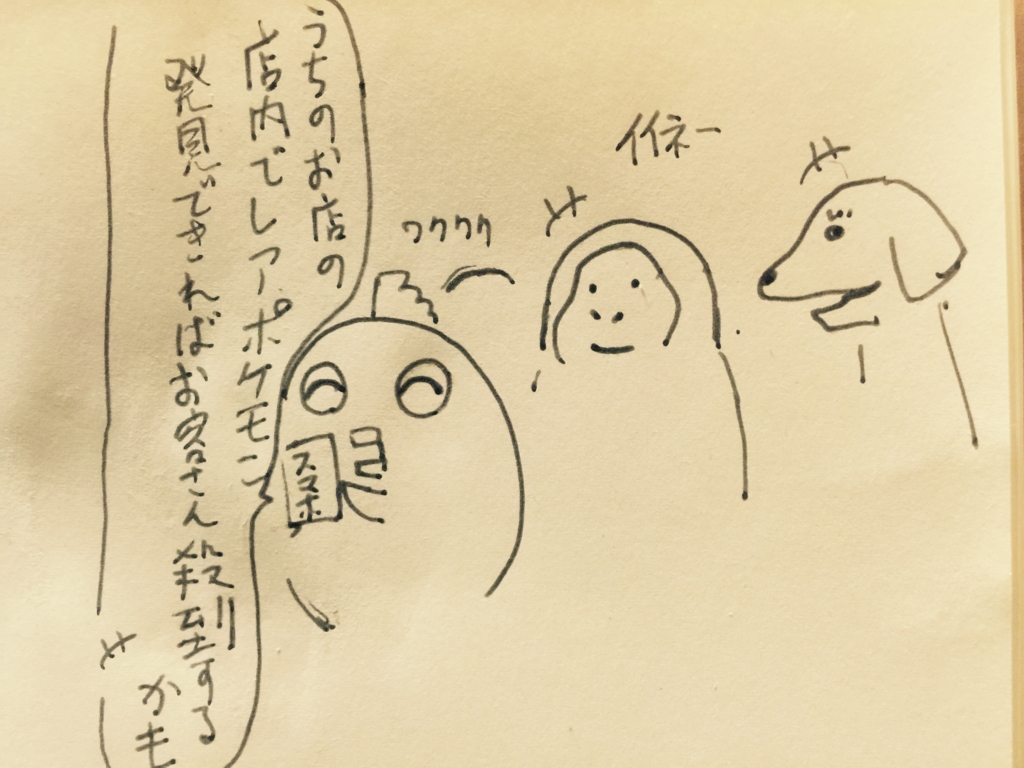 イイネー
ワクワク
うちのお店の
店内でレアポケモン
発見できればお客さん殺到する
かも
スマホ